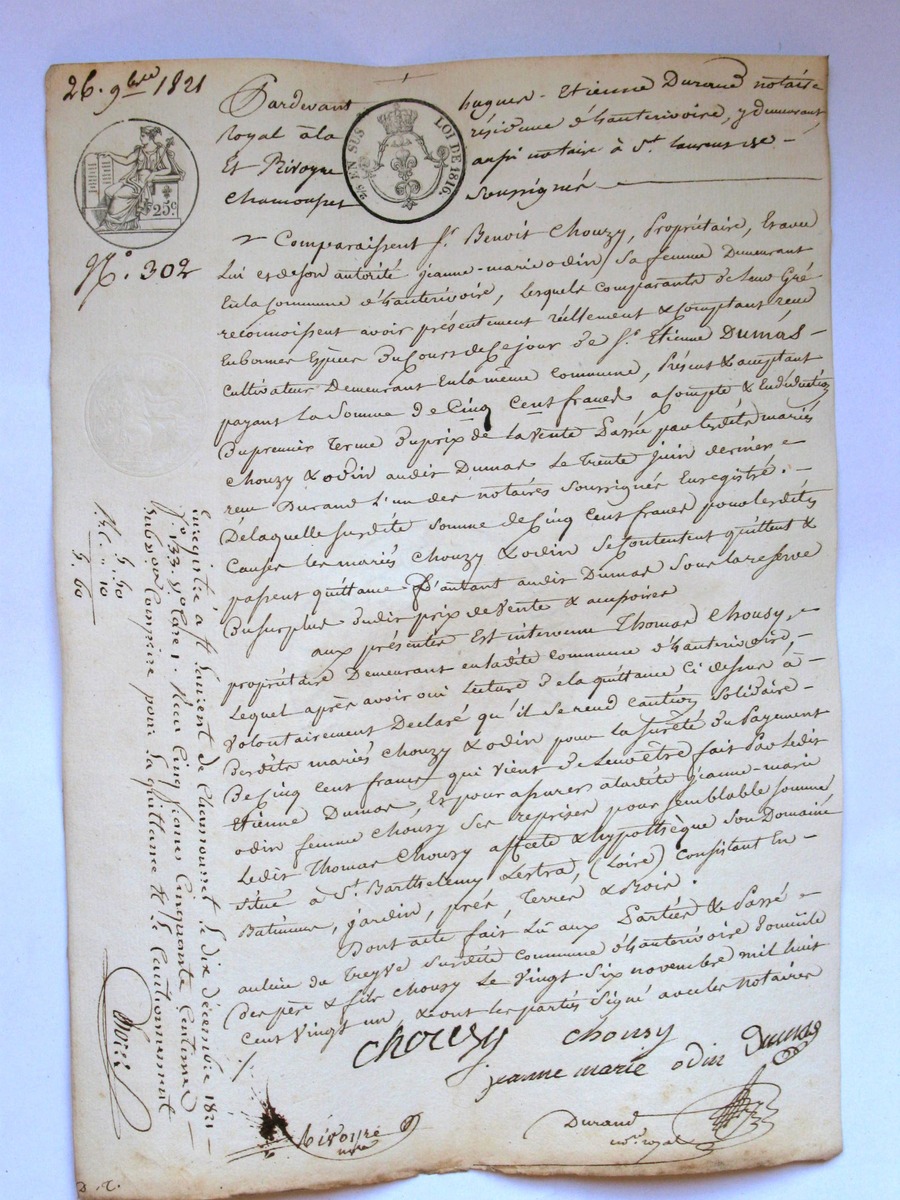 26. 9bre 1821
Pardevant hugues-Etienne Durand notaire
royal à la résidence d'hauterivoire, y demeurant
Et Rivoyre aussi notaire à St. laurent de
chamousset soussigné
EN SUS
LOI DE 1816.
25c.
N.o 302
Comparaissent Sr. Benoit Chouzy, Propriétaire, Et avec
lui et de son autorité jeanne-marie odin sa femme Demeurant
En la Commune d'hauterivoire, lesquels comparants de leur Gré
reconnoissent avoir présentement réellement & comptant reçu
En bonnes Espèces du Cours de Ce jour de Sr. Etienne Dumas
Cultivateur Demeurant En la même commune, Présent & acceptant
payant la Somme de Cinq Cent francs à Compte & En déduction
Du premier terme Du prix de la Vente Passée par les dits mariés
Chouzy & odin audit Dumas le trente juin dernier
reçu Durand l'un des notaires soussignés Enregistré.
De laquelle susdite somme de Cinq Cent francs pour les dites
Causes les mariés Chouzy & odin se Contentent quittent &
passent quittance D'autant audit Dumas sous la réserve
Du surplus dudit prix de Vente & accessoires
aux présentes Est intervenu Thomas Chousy,
propriétaire Demeurant en ladite commune d'hauterivoire,
lequel après avoir oui lecture de la quittance Ci dessus à
Volontairement Déclaré qu'il se rend caution solidaire
Desdits mariés Chouzy & odin pour la sureté du Payement
De Cinq Cent francs qui vient de leur être fait Par ledit
Etienne Dumas, Et pour assurer à ladite jeanne-marie
odin femme Chousy ses reprises pour semblable somme,
ledit Thomas Chouzy affecte & hypothèque son Domaine
situé à St. Barthelemy Lestra, (Loire) Consistant En
Batiments, jardin, prés, Terres & Bois.
Dont acte fait Lu aux Parties & Passé
au lieu du Treyve susdite Commune d'hauterivoire domicile
Des père & fils Chouzy le Vingt six novembre mil huit
Cent Vingt un, & ont les parties signé avec les notaires
chouzy chousy
jeanne marie odin Dumas
Rivoyre
nre
Durand
nore. royal
Enregistré à St. Laurent de Chamousset le dix décembre 1821
Reçu Cinq francs Cinquante Centimes
Subvon. Comprise pour la quittance et le Cautionnement
5.50
10
5.60
D.t.